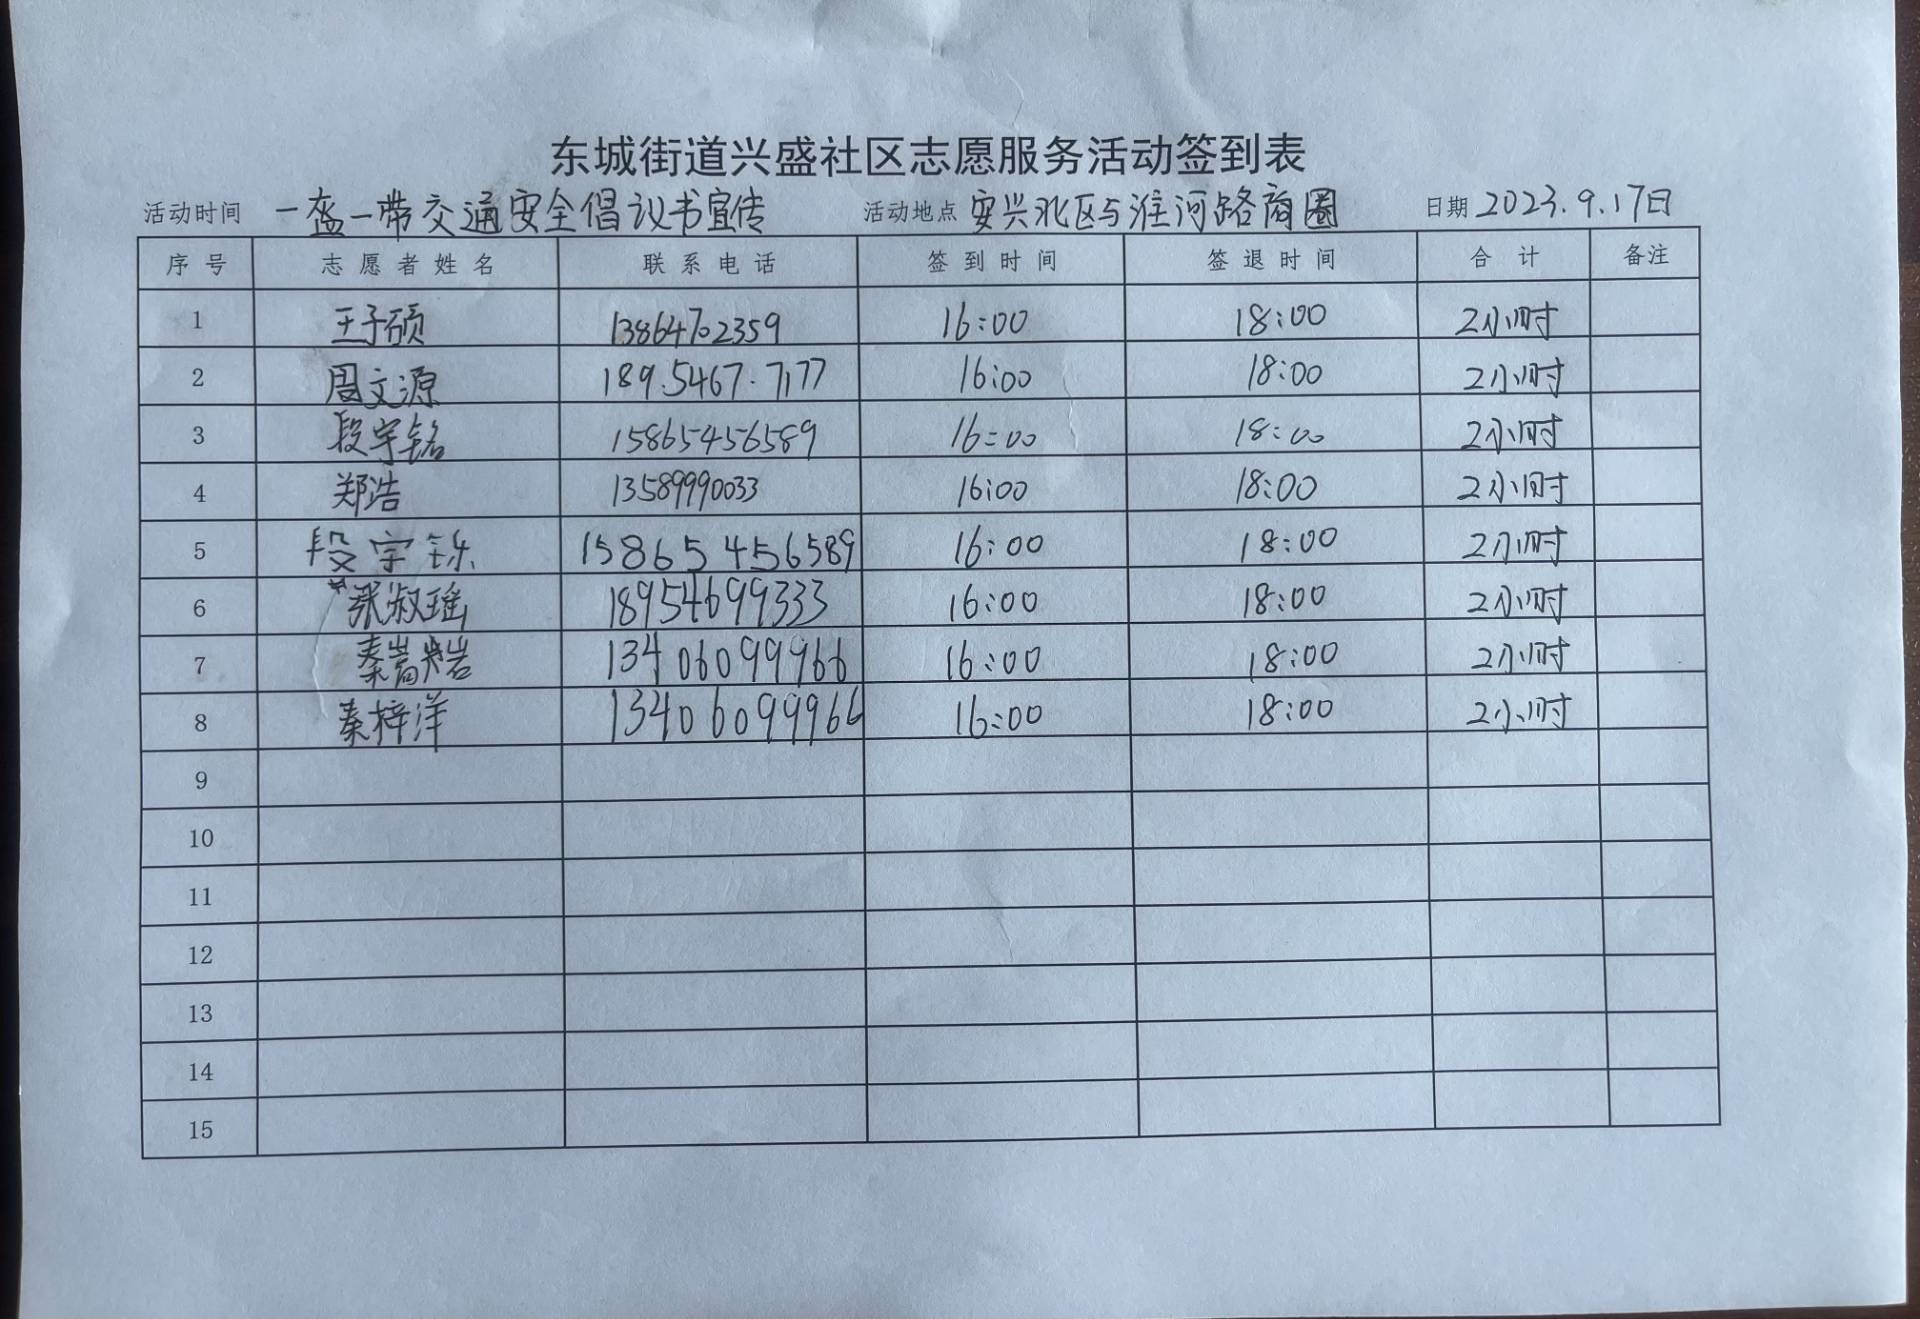 东城街道兴盛社区志愿服务活动签到表
活动时间 一盔一带交通安全倡议书宣传 活动地点 安兴北区与淮河路商圈 日期 2023.9.17日
序号 志愿者姓名 联系电话 签到时间 签退时间 合计 备注
1 王子硕 13864702359 16:00 18:00 2小时
2 周文源 189.5467.7177 16:00 18:00 2小时
3 段宇铭 15865456589 16:00 18:00 2小时
4 郑浩 13589990033 16:00 18:00 2小时
5 段宇铄 15865456589 16:00 18:00 2小时
6 张淑瑶 18954699333 16:00 18:00 2小时
7 秦嵩岩 13406099966 16:00 18:00 2小时
8 秦梓洋 13406099966 16:00 18:00 2小时
9
10
11
12
13
14
15